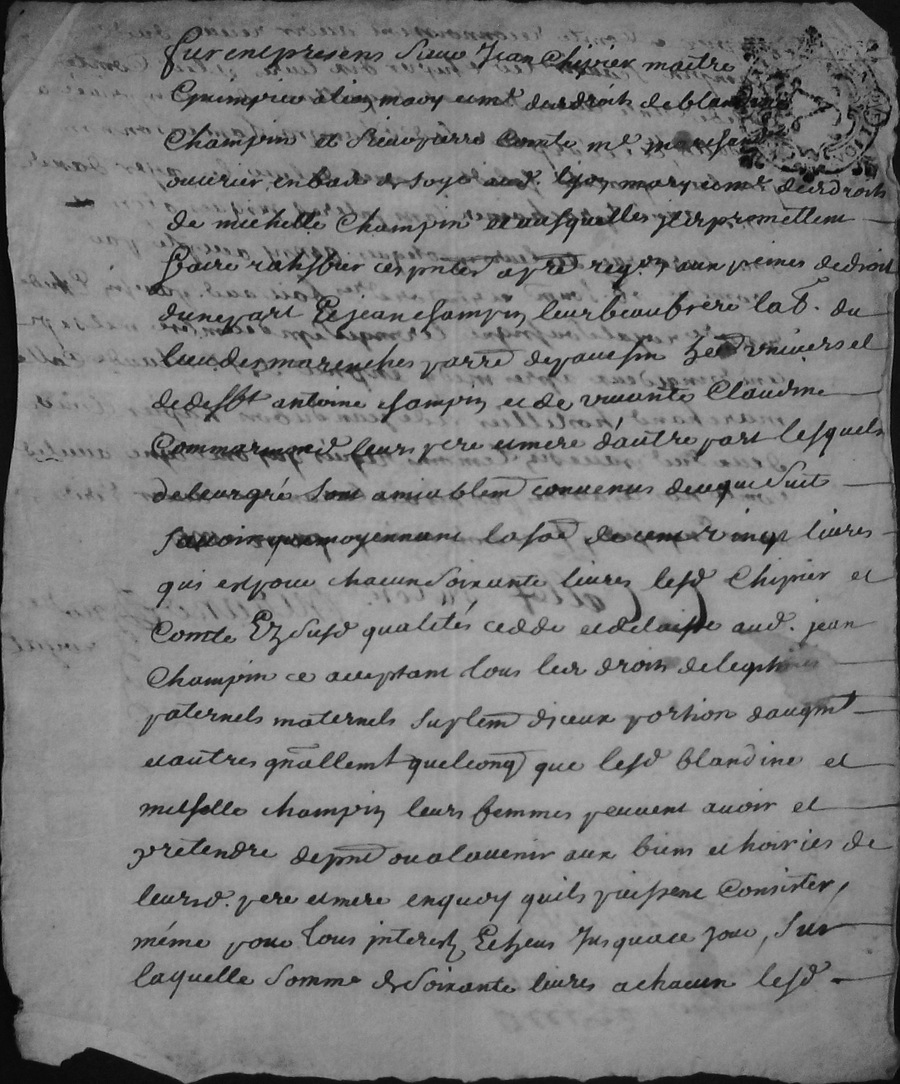 furent presens Sieur Jean Chipier maitre
Guimpier a Lyon mary et me des droits de blandine
Champin et Sieur pierre Comte md
ouvrier en bas de Soye aud. Lyon mary et me des droits
de michelle Champin et ausquelles ils promettent
faire ratiffier ces pntes apres reqon aux peines de droit
d'une part Et jean champin leur beaufrere lab. du
lieu de marenches parr de herit universel
de defft antoine champin et de vivante Claudine
leurs pere et mere d'autre part lesquels
de leur gré Sont amiablemt convenus de ce que Suit
Savoir que moyennant la soe de cent vingt livres
qui est pour chacun Soixante livres lesd Chipier et
Comte Ez Susd qualités cedde et delaisse aud. jean
Champin ce acceptant tous leur droits de legitimes
paternels maternels suplemt d'iceux portion d'augmt
et autres gnallemt quelconq que lesd blandine et
michelle champin leurs femmes peuvent avoir et
pretendre de pnt ou a l'avenir aux biens et hoiries de
leursd. pere et mere en quoy qu'ils puissent Consister,
méme pour tous interest Echeus Jusqua ce jour, Sur
laquelle Somme de Soixante livres a chacun lesd